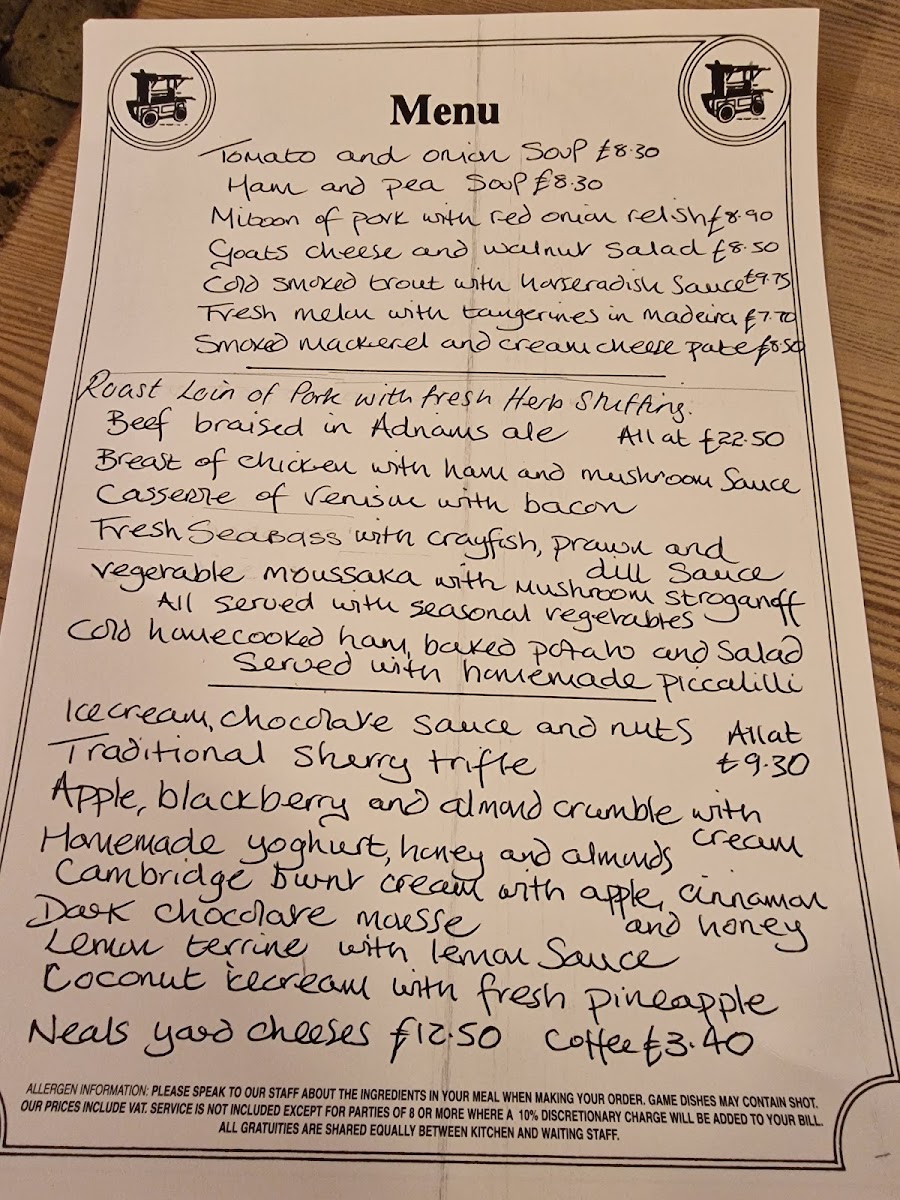 Menu
Tomato and onion Soup £8.30
Ham and pea Soup £8.30
of pork with red onion relish £8.90
Goats cheese and walnut Salad £8.50
Cold smoked trout with horseradish Sauce £9.75
Fresh melon with tangerines in madeira £7.70
Smoked mackerel and cream cheese pate £8.50
Roast Loin of Pork with fresh Herb Stuffing.
Beef braised in Adnams ale All at £22.50
Breast of chicken with ham and mushroom Sauce
Casserle of venison with bacon
Fresh SeaBass with crayfish, prawn and
dill Sauce
vegetable moussaka with mushroom stroganoff
All served with seasonal vegetables
Cold homecooked ham, baked potato and Salad
Served with homemade piccalilli
Icecream, chocolate sauce and nuts All at
Traditional Sherry trifle £9.30
Apple, blackberry and almond crumble with
cream
Homemade yoghurt, honey and almonds
Cambridge burnt cream with apple, cinnamon
and honey
Dark chocolate mousse
Lemon terrine with lemon Sauce
Coconut icecream with fresh pineapple
Neals yard cheeses £12.50 Coffee £3.40
ALLERGEN INFORMATION: PLEASE SPEAK TO OUR STAFF ABOUT THE INGREDIENTS IN YOUR MEAL WHEN MAKING YOUR ORDER. GAME DISHES MAY CONTAIN SHOT.
OUR PRICES INCLUDE VAT. SERVICE IS NOT INCLUDED EXCEPT FOR PARTIES OF 8 OR MORE WHERE A 10% DISCRETIONARY CHARGE WILL BE ADDED TO YOUR BILL.
ALL GRATUITIES ARE SHARED EQUALLY BETWEEN KITCHEN AND WAITING STAFF.